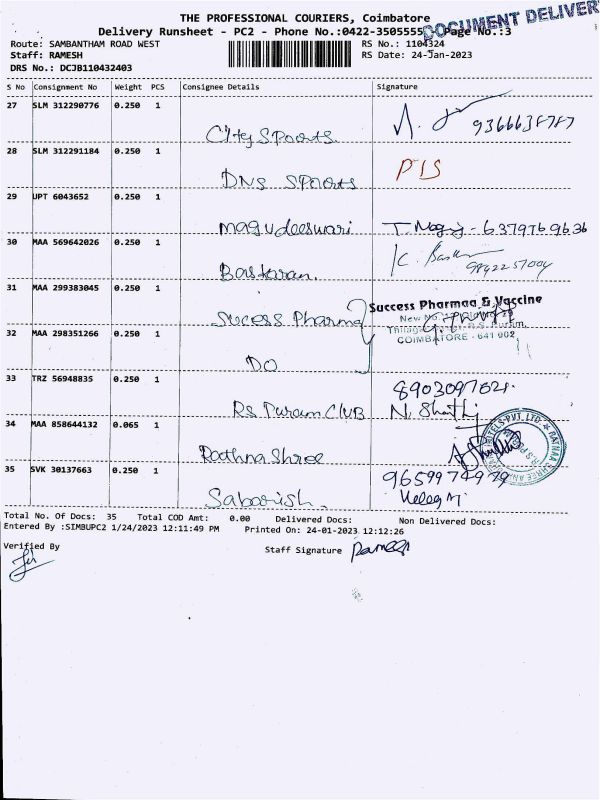 THE PROFESSIONAL COURIERS, Coimbatore
DOCUMENT DELIVER
Delivery Runsheet - PC2 - Phone No.:0422-3505555 Page No.:3
Route: SAMBANTHAM ROAD WEST RS No.: 1104324
Staff: RAMESH RS Date: 24-Jan-2023
DRS No.: DCJB110432403
S No Consignment No Weight PCS Consignee Details Signature
27 SLM 312290776 0.250 1
City Spoorts 9366638787
28 SLM 312291184 0.250 1
DNS Spoorts
29 UPT 6043652 0.250 1
Magudeeswari 6379769636
30 MAA 569642026 0.250 1
Baskaran 9842257004
31 MAA 299383045 0.250 1
Sucess Pharma Success Pharmaa & Vaccine
COIMBATORE - 641 002
32 MAA 298351266 0.250 1
DO
33 TRZ 56948835 0.250 1
8903097621.
RS Puram CLUB N. Shathi
34 MAA 858644132 0.065 1
Rathna Shree
35 SVK 30137663 0.250 1
9659974979
Sabarish.
Total No. Of Docs: 35 Total COD Amt: 0.00 Delivered Docs: Non Delivered Docs:
Entered By :SIMBUPC2 1/24/2023 12:11:49 PM Printed On: 24-01-2023 12:12:26
Verified By Staff Signature Ramesh